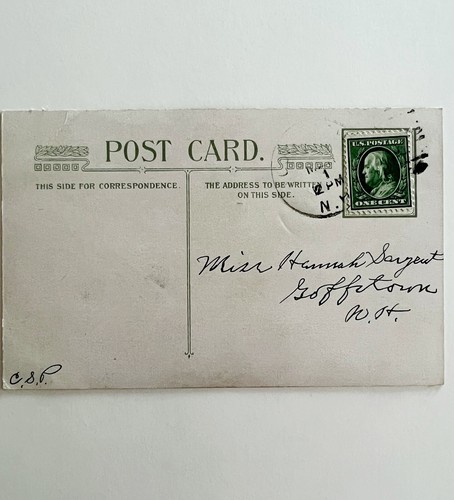 POST CARD.
THIS SIDE FOR CORRESPONDENCE.
THE ADDRESS TO BE WRITTEN
ON THIS SIDE.
1
2 PM
N.H.
U.S. POSTAGE
ONE CENT
Miss Hannah Sargent
Goffstown
N.H.
C.S.P.